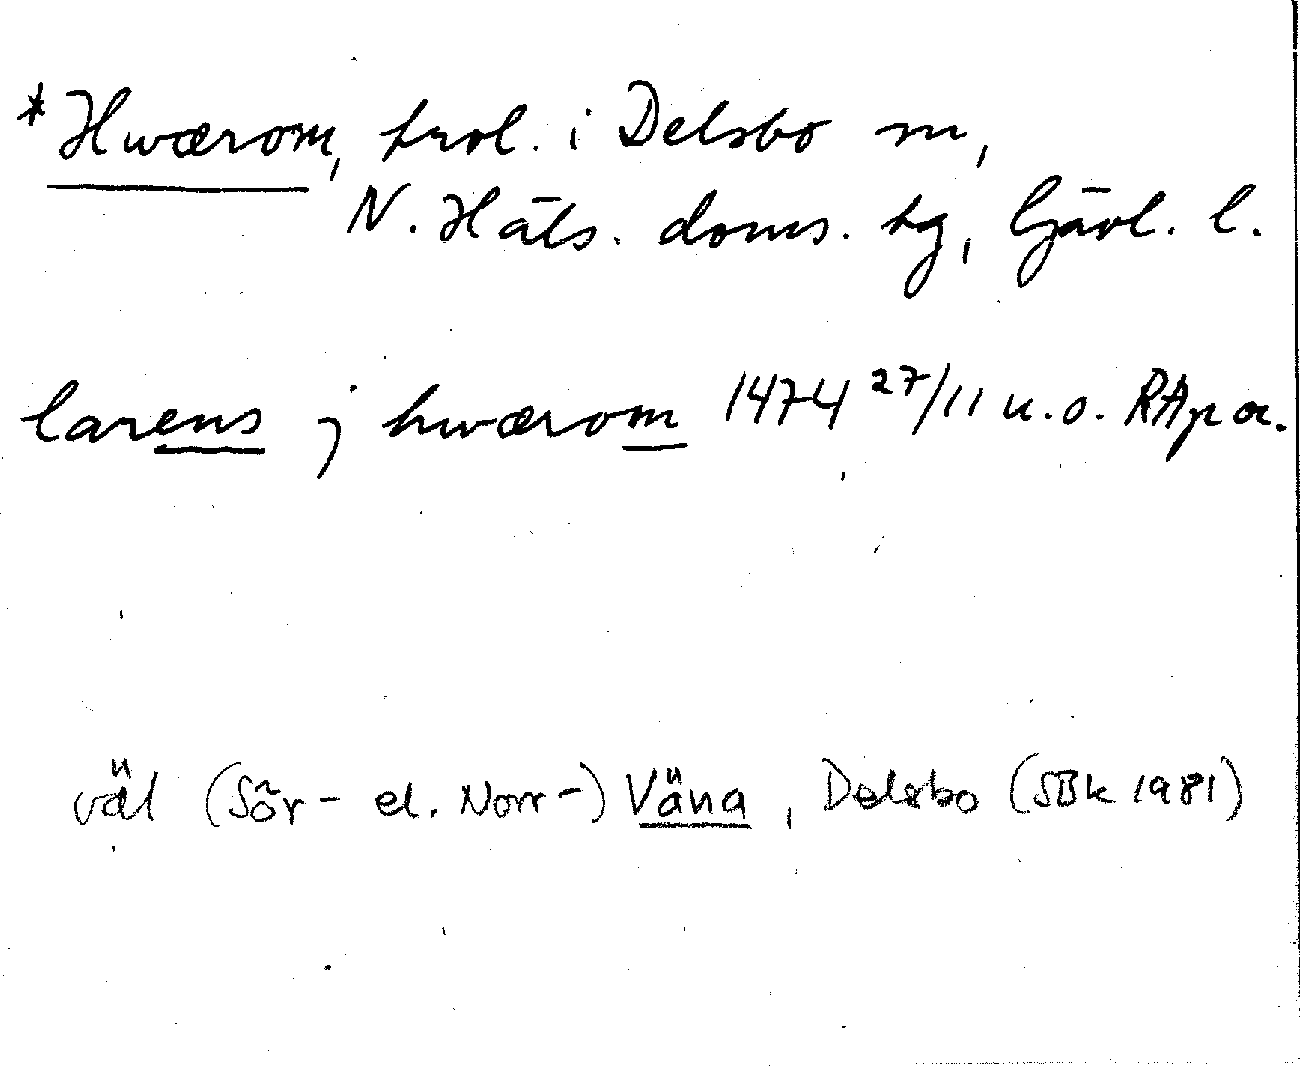 *Hwærom, trol. i Delsbo sn,
N. Häls. doms. tg, Gävl. l.
larens j hwærom 1474 27/11 u.o. RAp or.
väl (Sör- el. Norr-) Väna, Delsbo (SBk 1981)